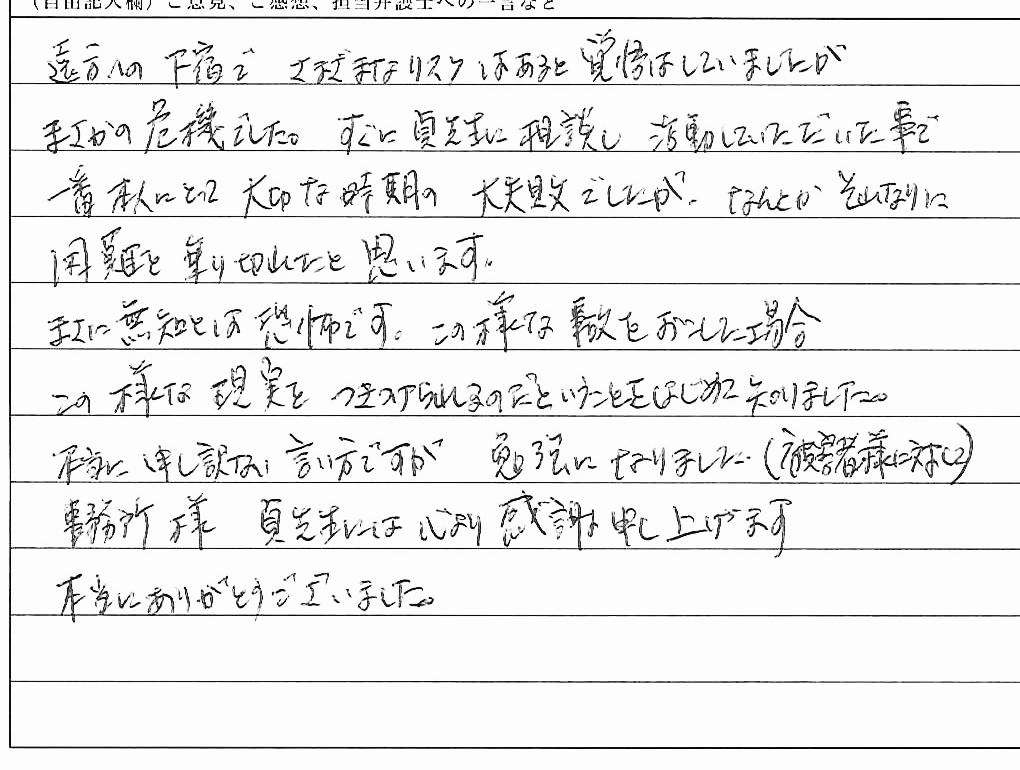 (自由記入欄)ご意見、ご感想、担当弁護士への一言など
遠方への下宿で さまざまなリスクはあると覚悟はしていましたが
まさかの危機でした。すぐに貞先生に相談し 活動していただいた事で
一番本人にとって大切な時期の 大失敗でしたが、なんとか それなりに
困難を乗り切れたと思います。
まさに無知とは恐怖です。この様な事故をおこした場合
この様な現実をつきつけられるのだということをはじめて知りました。
本当に申し訳ない言い方ですが 勉強になりました(被害者様に対して)
事務所様 貞先生には心より感謝申し上げます
本当にありがとうございました。